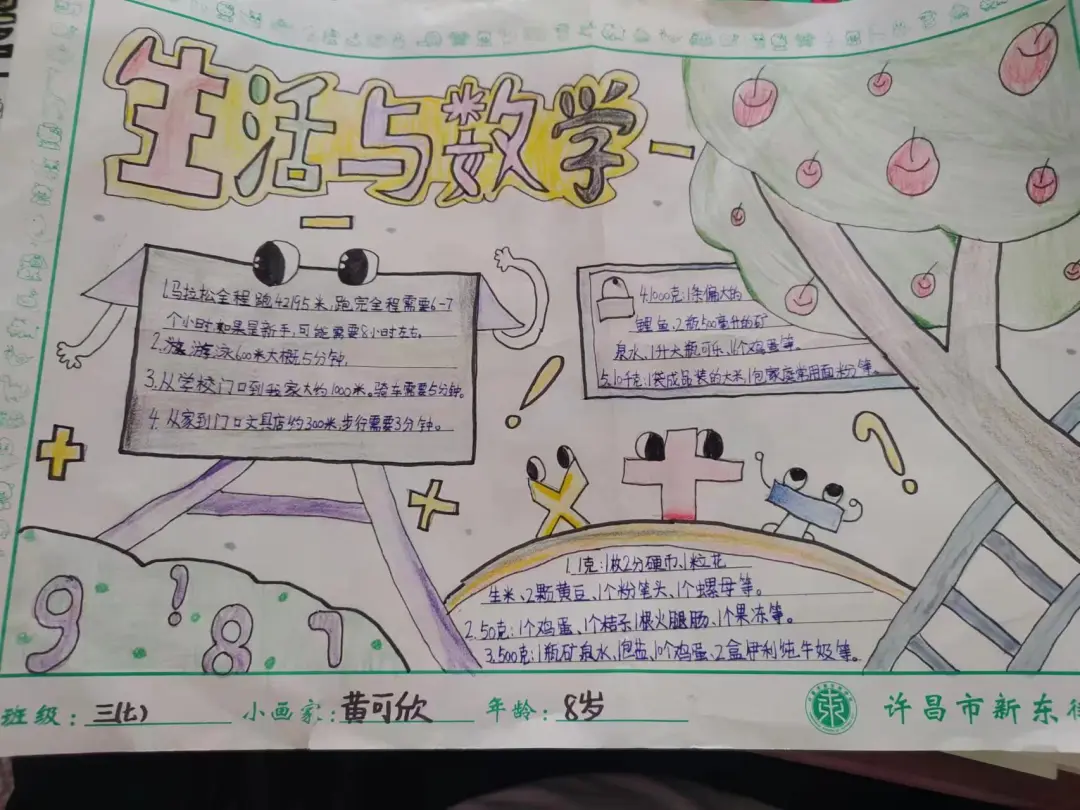 生活与数学
1.马拉松全程跑42195米,跑完全程需要6-7
个小时.如果是新手,可能需要8小时左右。
2.游泳600米大概5分钟.
3.从学校门口到我家大约1000米.骑车需要5分钟。
4.从家到门口文具店约300米,步行需要3分钟。
4.1000克:1条偏大的
鲤鱼、2瓶500毫升的矿
泉水、1升大瓶可乐、
个鸡蛋等。
5.10千克:1袋成品装的大米,1包家庭常用面粉等。
1.1克:1枚2分硬币、1粒花
生米、2颗黄豆、1个粉笔头、1个螺母等。
2.50克:1个鸡蛋、1个桔子,1根火腿肠、1个果冻等。
3.500克:1瓶矿泉水,1包盐、10个鸡蛋、2盒伊利纯牛奶等。
9 8 7
班级:三(七) 小画家:黄可欣 年龄:8岁 许昌市新东街